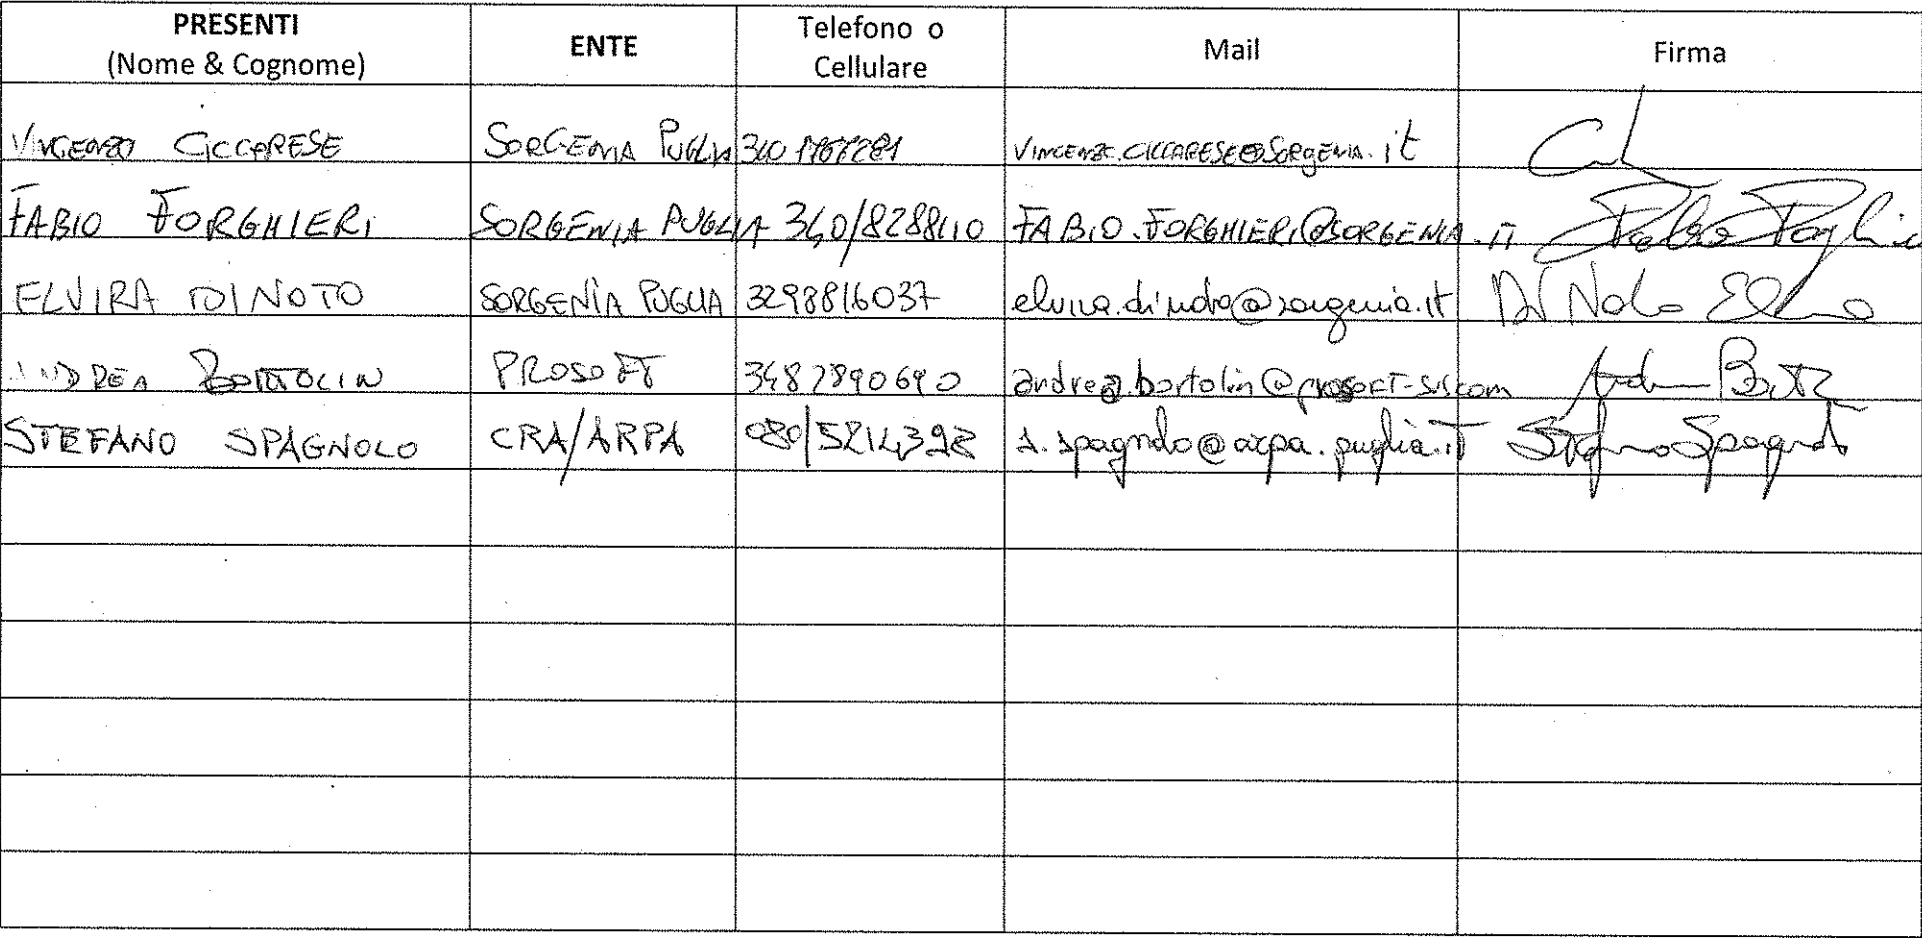 PRESENTI (Nome & Cognome) ENTE Telefono o Cellulare Mail Firma
VINCENZO CICCARESE SORGENIA PUGLIA VINCENZO.CICCARESE@SORGENIA.it
FABIO FORGHIERI SORGENIA PUGLIA 340/8288110 FABIO.FORGHIERI@SORGENIA.IT
ELVIRA DI NOTO SORGENIA PUGLIA 3298816037 elvira.dinoto@sorgenia.it Di Noto Elvira
ANDREA BORTOLIN PROSOFT 3482890690 andrea.bortolin@prosoft-sis.com
STEFANO SPAGNOLO CRA/ARPA 080/5214398 s.spagnolo@arpa.puglia.it Stefano Spagnolo